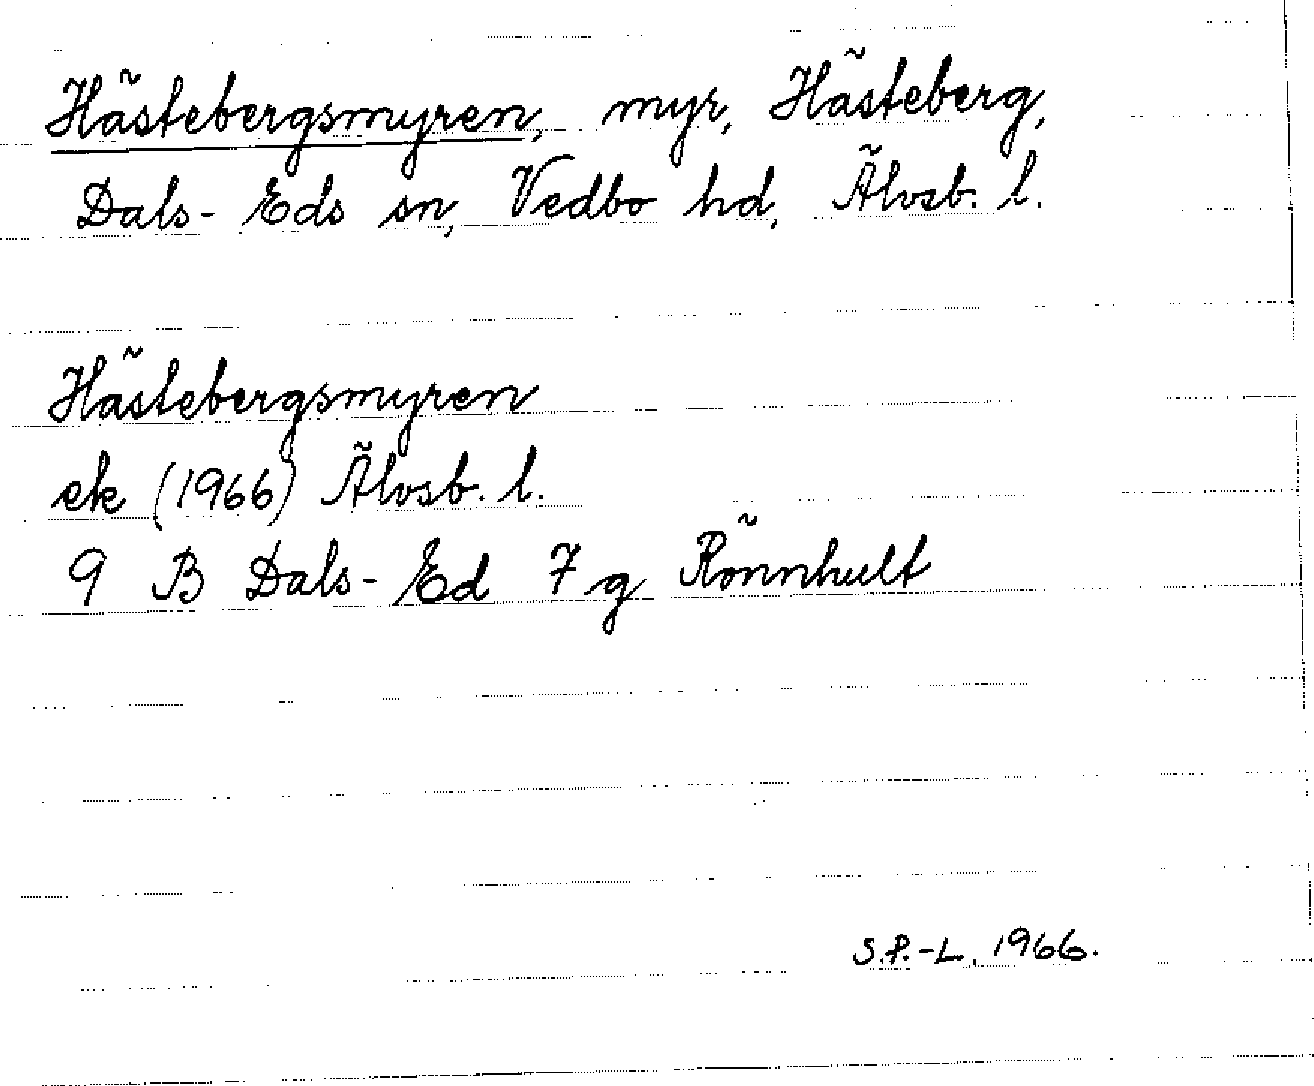 Hästebergsmyren, myr, Hästeberg,
Dals-Eds sn, Vedbo hd, Älvsb. l.
Hästebergsmyren
ek (1966) Älvsb. l.
9 B Dals-Ed 7 g Rönnhult
S.P.-L. 1966.